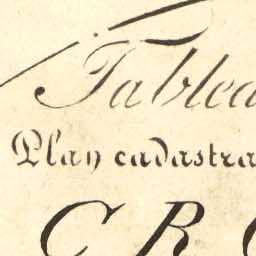 Tablea
Plan cadastra
CRO